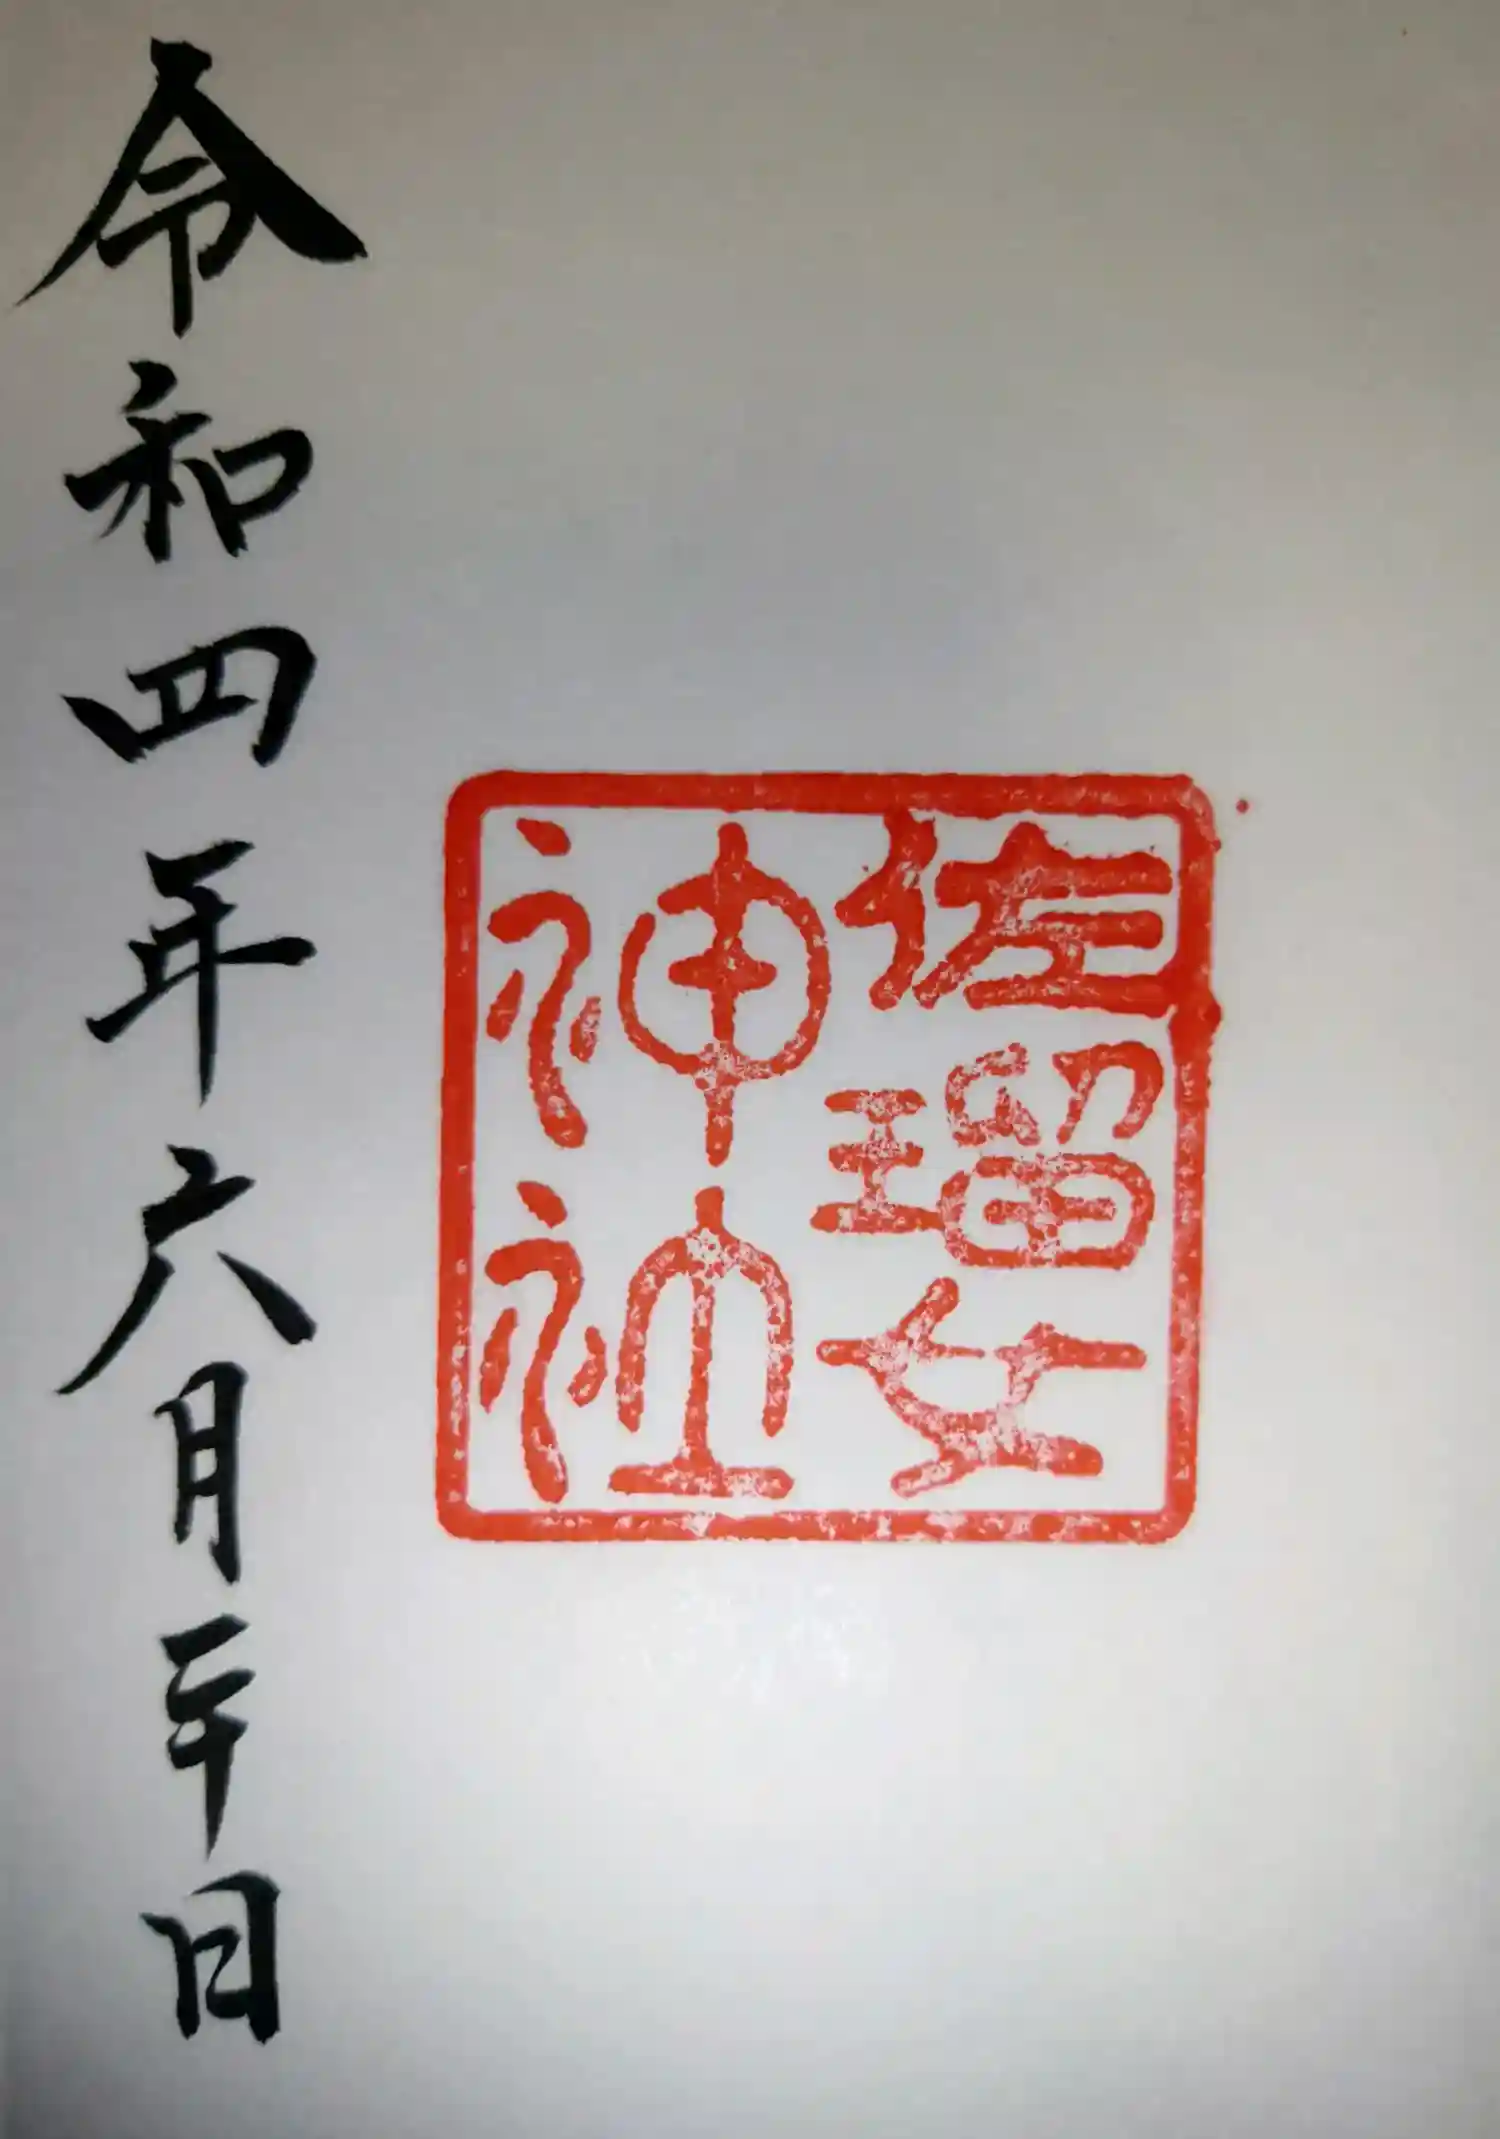 佐瑠女
神社
令和四年六月二十日